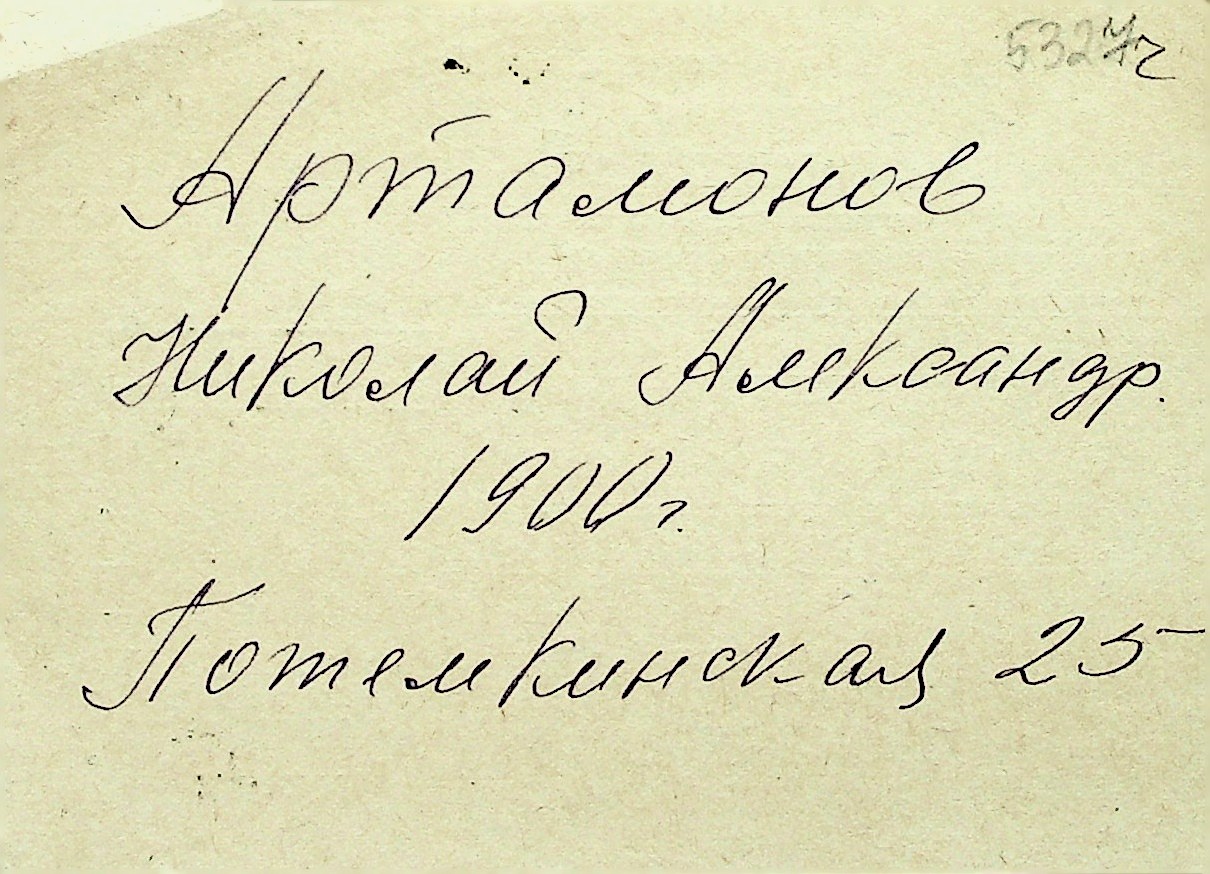 Артамонов
Николай Александр.
1900г.
Потемкинская 25